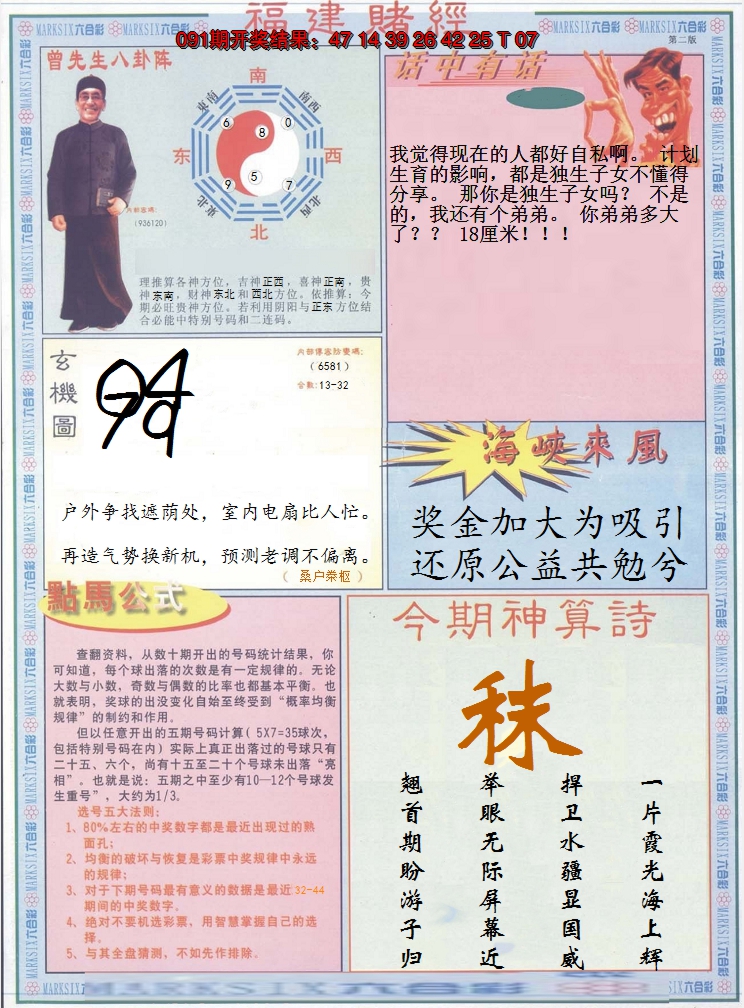 福建賭經
091期开奖结果：47 14 39 26 42 25 T 07
MARKSIX六合彩
第二版
曾先生八卦阵
南
东南
西南
东
西
东北
西北
北
6
8
0
9
5
7
内部密碼:
(936120)
理推算各神方位，吉神正西，喜神正南，贵
神东南，财神东北和西北方位。依推算：今
期必旺贵神方位。若利用阴阳与正东方位结
合必能中特别号码和二连码。
话中有话
我觉得现在的人都好自私啊。 计划
生育的影响，都是独生子女不懂得
分享。 那你是独生子女吗？ 不是
的，我还有个弟弟。 你弟弟多大
了？？ 18厘米！！！
玄機圖
内部傳密防變碼:
(6581)
合數:13-32
户外争找遮荫处，室内电扇比人忙。
再造气势换新机，预测老调不偏离。
（ 桑户桊枢 ）
海峽來風
奖金加大为吸引
还原公益共勉兮
點馬公式
查翻资料，从数十期开出的号码统计结果，你
可知道，每个球出落的次数是有一定规律的。无论
大数与小数，奇数与偶数的比率也都基本平衡。也
就表明，奖球的出没变化自始至终受到“概率均衡
规律”的制约和作用。
但以任意开出的五期号码计算( 5X7=35球次，
包括特别号码在内）实际上真正出落过的号球只有
二十五、六个，尚有十五至二十个号球未出落“亮
相”。也就是说：五期之中至少有10—12个号球发
生重号”，大约为1/3。
选号五大法则：
1、80%左右的中奖数字都是最近出现过的熟
面孔；
2、均衡的破坏与恢复是彩票中奖规律中永远
的规律；
3、对于下期号码最有意义的数据是最近32-44
期间的中奖数字。
4、绝对不要机选彩票，用智慧掌握自己的选
择。
5、与其全盘猜测，不如先作排除。
今期神算詩
秣
一片霞光海上辉
捍卫水疆显国威
举眼无际屏幕近
翘首期盼游子归